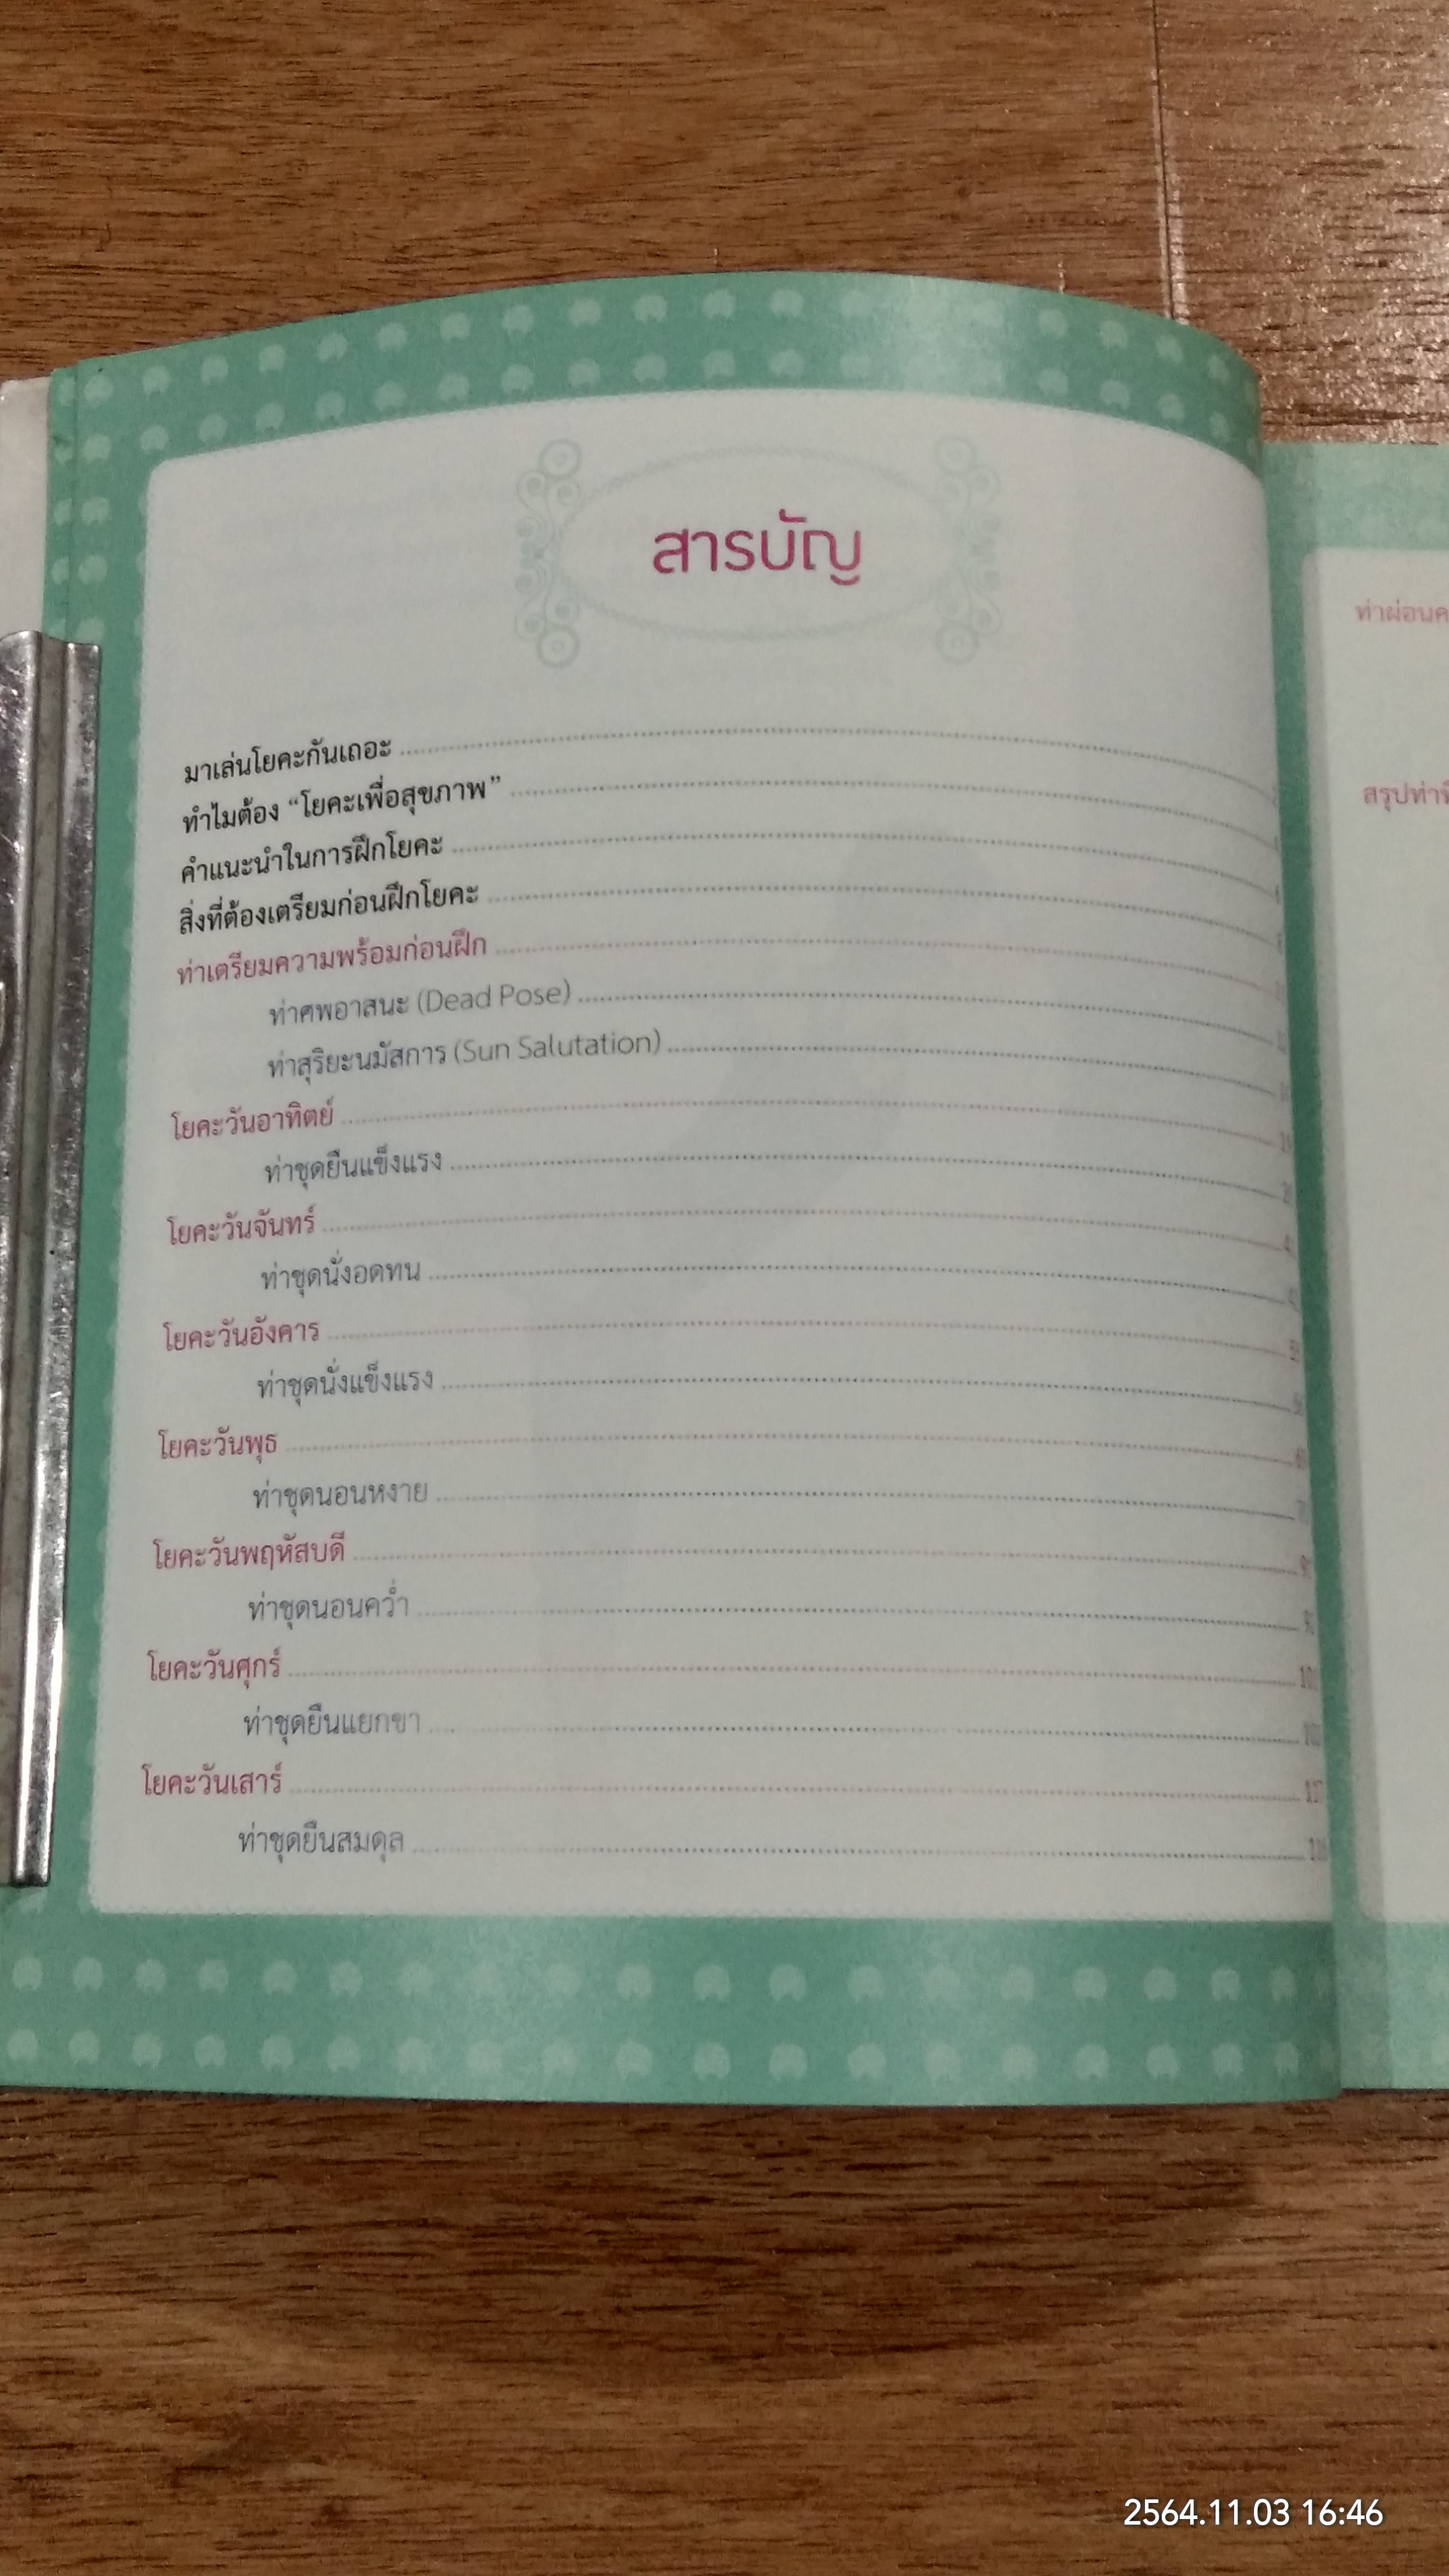 สารบัญ
มาเล่นโยคะกันเถอะ
ทำไมต้อง “โยคะเพื่อสุขภาพ”
คำแนะนำในการฝึกโยคะ
สิ่งที่ต้องเตรียมก่อนฝึกโยคะ
ท่าเตรียมความพร้อมก่อนฝึก
ท่าศพอาสนะ (Dead Pose)
ท่าสุริยะนมัสการ (Sun Salutation)
โยคะวันอาทิตย์
ท่าชุดยืนแข็งแรง
โยคะวันจันทร์
ท่าชุดนั่งอดทน
โยคะวันอังคาร
ท่าชุดนั่งแข็งแรง
โยคะวันพุธ
ท่าชุดนอนหงาย
โยคะวันพฤหัสบดี
ท่าชุดนอนคว่ำ
โยคะวันศุกร์
ท่าชุดยืนแยกขา
โยคะวันเสาร์
ท่าชุดยืนสมดุล
ท่าผ่อนค
สรุปท่า
2564.11.03 16:46